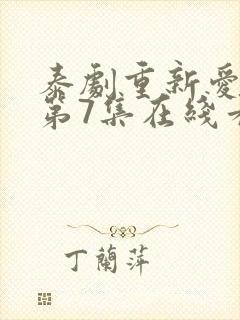 泰劇重新愛
第7集在綫
丁蘭萍